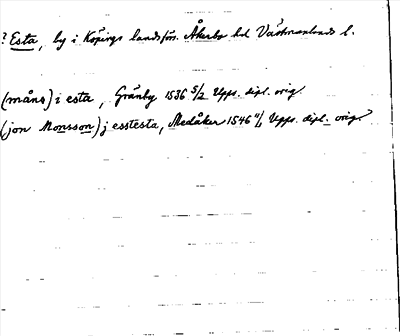 ? Esta, by i Köpings landsförs. Åkerbo hd Västmanlands l.
(måns) i esta, Gränby 1536 5/2 Upps. dipl. orig.
(jon Monsson) j esstesta, Medåker 1546 4/1 Upps. dipl. orig.?